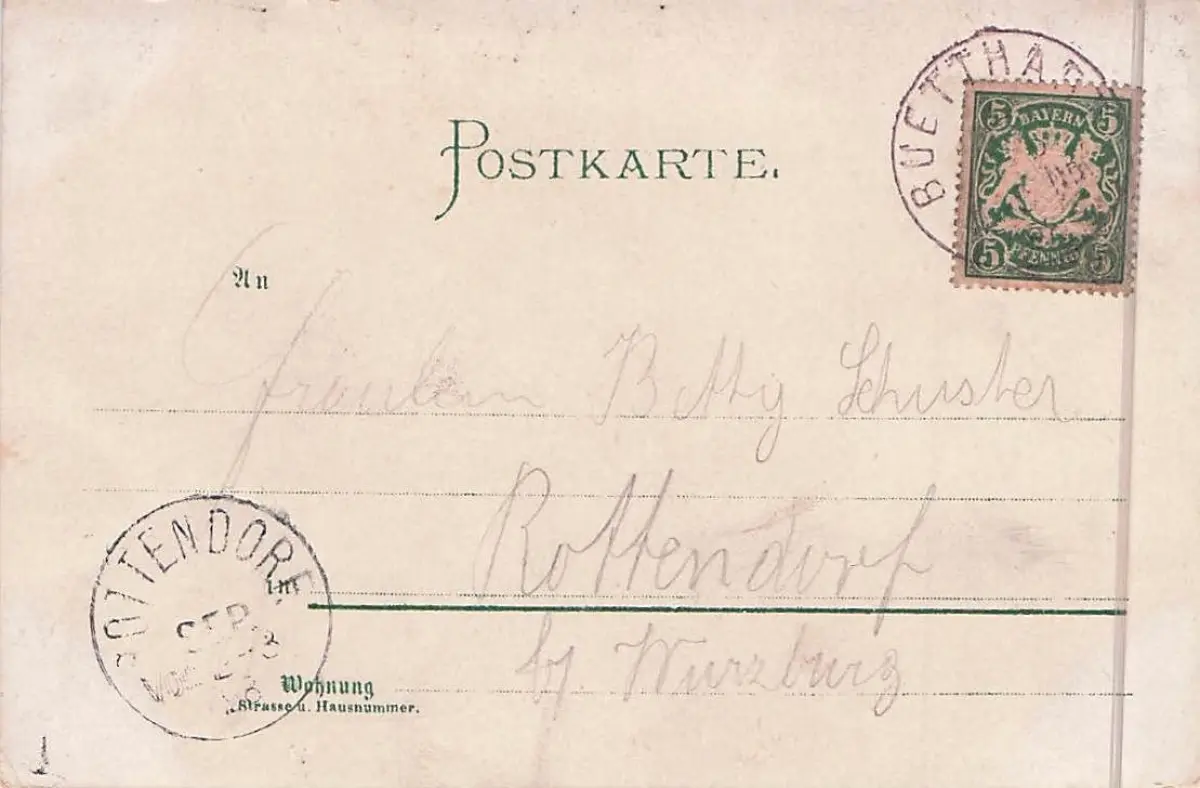 POSTKARTE.
BUETTHAR
5 BAYERN 5
5 PFENNIG 5
An
Fräulein Betty Schuster
Rottendorf
in
b/ Wurzburg
ROTTENDORF
SEP
Wohnung
Strasse u. Hausnummer.